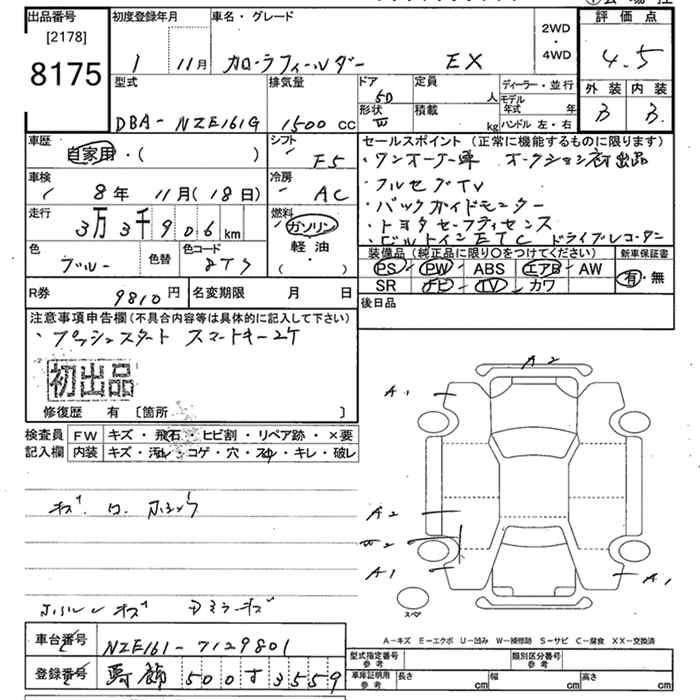 出品番号 初度登録年月 車名・グレード 2WD・4WD 評価点
[2178]
8175 1 11月 カローラフィールダー EX 4.5
型式 排気量 ドア 5D 定員 人 ディーラー・並行 外装 内装
DBA- NZE161G 1500 CC 形状 積載 kg モデル年式 年 ハンドル 左・右 B B
車歴 シフト セールスポイント(正常に機能するものに限ります)
自家用・( ) F5 ・ワンオーナー車 オークション初出品
車検 冷房 ・フルセグTV
8年 11月(18日) AC ・バックガイドモニター
走行 燃料 ・トヨタセーフティセンス
3万3千906km ガソリン ・ビルトインETC ドライブレコーダー
色 色替 色コード 軽油・( ) 装備品(純正品に限り○をつけてください) 新車保証書
ブルー 8T7 PS PW ABS エアB AW 有・無
R券 9810円 名変期限 月 日 SR ナビ TV カワ
注意事項申告欄(不具合内容等は具体的に記入して下さい) 後日品
・プッシュスタート スマートキー2ケ
初出品
修復歴 有 〔箇所 〕
検査員 FW キズ・飛石・ヒビ割・リペア跡・×要
記入欄 内装 キズ・汚れ・コゲ・穴・スレ・キレ・破レ
A2
A1
A2
W2
A1
A1
スペア
ホイルキズ ドアミラーキズ
A-キズ E-エクボ U-凹み W-補修跡 S-サビ C-腐食 XX-交換済
車台番号 NZE161-7129801
型式指定番号 参考 類別区分番号 参考
登録番号 500 す 3559
車庫証明用 参考 長さ cm 幅 cm 高さ cm